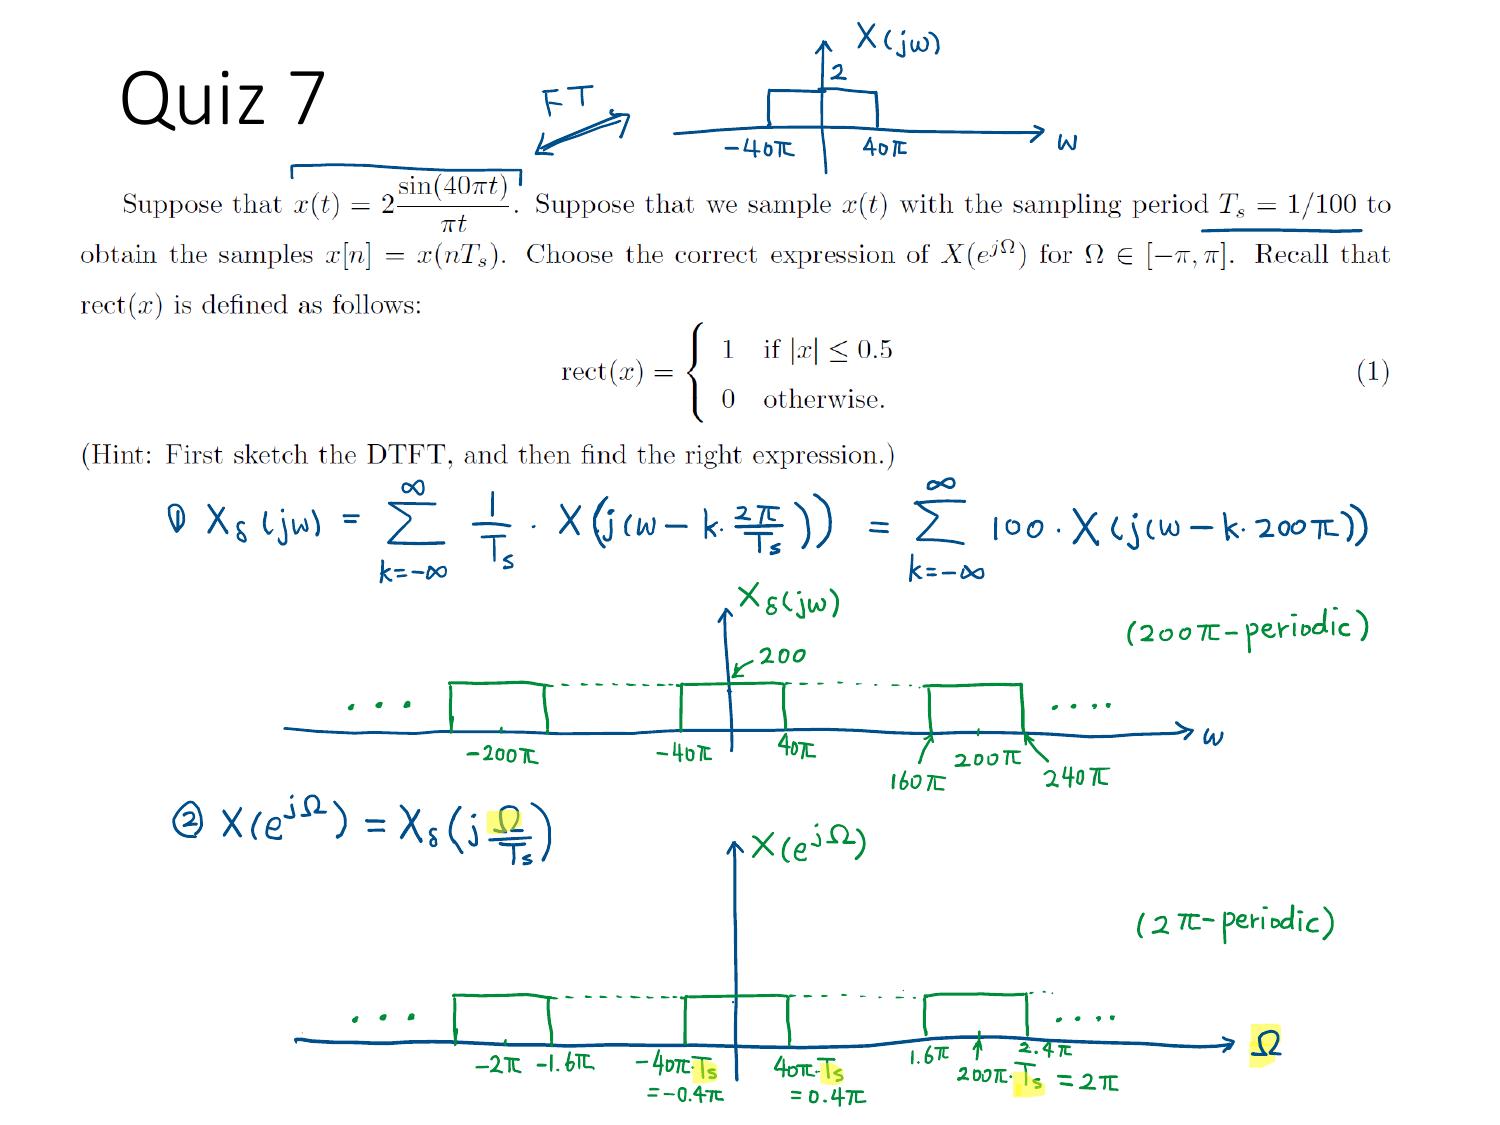 X(jω)
2
Quiz 7
FT
-40π 40π ω
Suppose that x(t) = 2 sin(40πt)/πt. Suppose that we sample x(t) with the sampling period Tₛ = 1/100 to
obtain the samples x[n] = x(nTₛ). Choose the correct expression of X(e^{jΩ}) for Ω ∈ [−π, π]. Recall that
rect(x) is defined as follows:
rect(x) = { 1 if |x| ≤ 0.5
0 otherwise. (1)
(Hint: First sketch the DTFT, and then find the right expression.)
① X_δ(jω) = ∑_{k=-∞}^{∞} 1/Tₛ · X(j(ω - k·2π/Tₛ)) = ∑_{k=-∞}^{∞} 100 · X(j(ω - k·200π))
X_δ(jω)
(200π-periodic)
200
... ....
-200π -40π 40π 160π 200π 240π ω
② X(e^{jΩ}) = X_δ(j Ω/Tₛ)
X(e^{jΩ})
(2π-periodic)
... ....
-2π -1.6π -40π·Tₛ 40π·Tₛ 1.6π 2.4π Ω
= -0.4π = 0.4π 200π·Tₛ = 2π